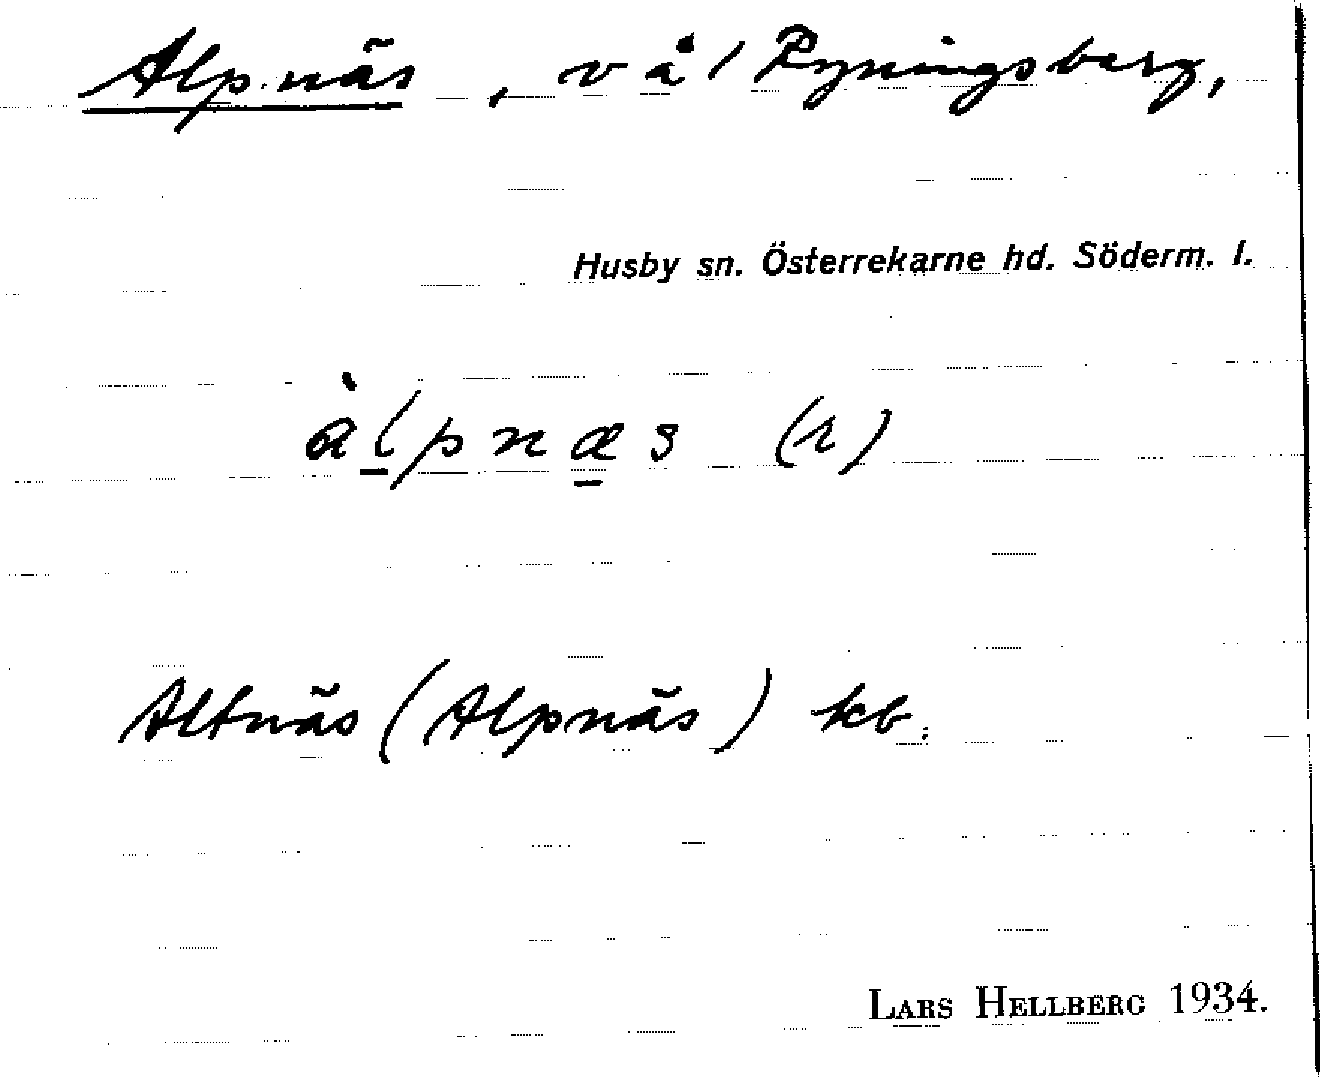 Alpnäs, v å / Ryningsberg,
Husby sn. Österrekarne hd. Söderm. l.
àlpnæs (r)
Altnäs (Alpnäs) kb.
LARS HELLBERG 1934.